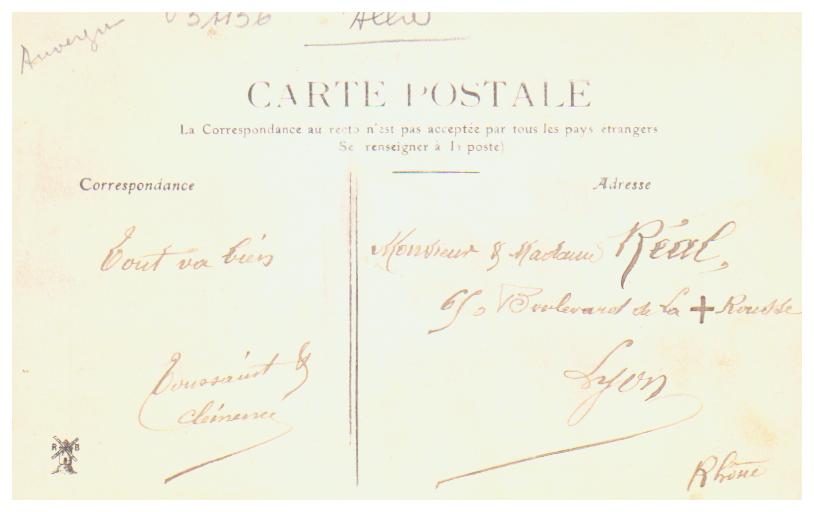 Auvergne
Allier
CARTE POSTALE
La Correspondance au recto n'est pas acceptée par tous les pays étrangers
Se renseigner à la poste)
Correspondance
Adresse
Tout va bien
Monsieur & Madame Réal,
Boulevard de la + Rousse
Toussaint &
Clémence
Lyon
R B
Rhône